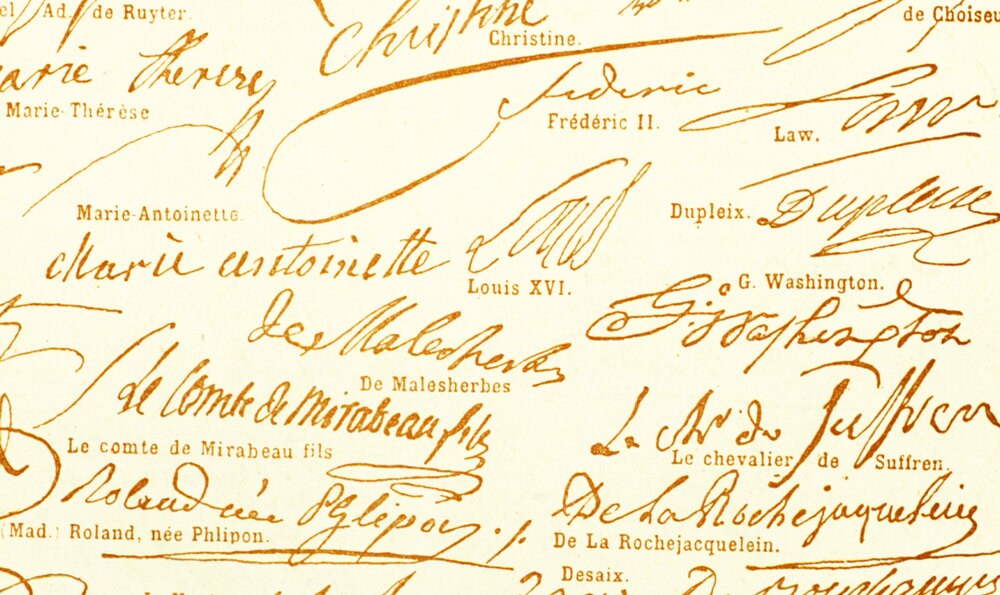 Ad. de Ruyter.
Christine
Christine.
de Choiseu
Marie therese
Marie-Thérèse
federic
Frédéric II.
Law
Law.
Marie-Antoinette.
Marie antoinette
Louis
Louis XVI.
Dupleix.
Dupleix
G. Washington.
G. Washington
de Malesherbes
De Malesherbes
Le Comte de Mirabeau fils
Le comte de Mirabeau fils
Le chevalier de Suffren.
Roland née Phlipon
(Mad.) Roland, née Phlipon.
De La Rochejaquelein
De La Rochejacquelein.
Desaix.